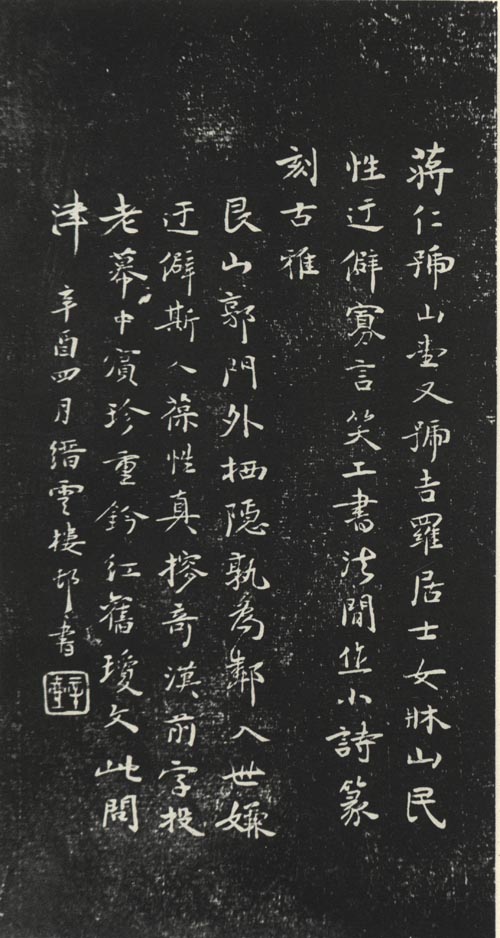 蔣仁號山坣又號吉羅居士女牀山民
性迂僻寡言笑工書法間作小詩篆
刻古雅
艮山郭門外栖隱孰為鄰入世嫌
迂僻斯人葆性真搜奇漢前字投
老幕中賓珍重鈐紅舊瓊文此問
津 辛酉四月縉雲樓邨書